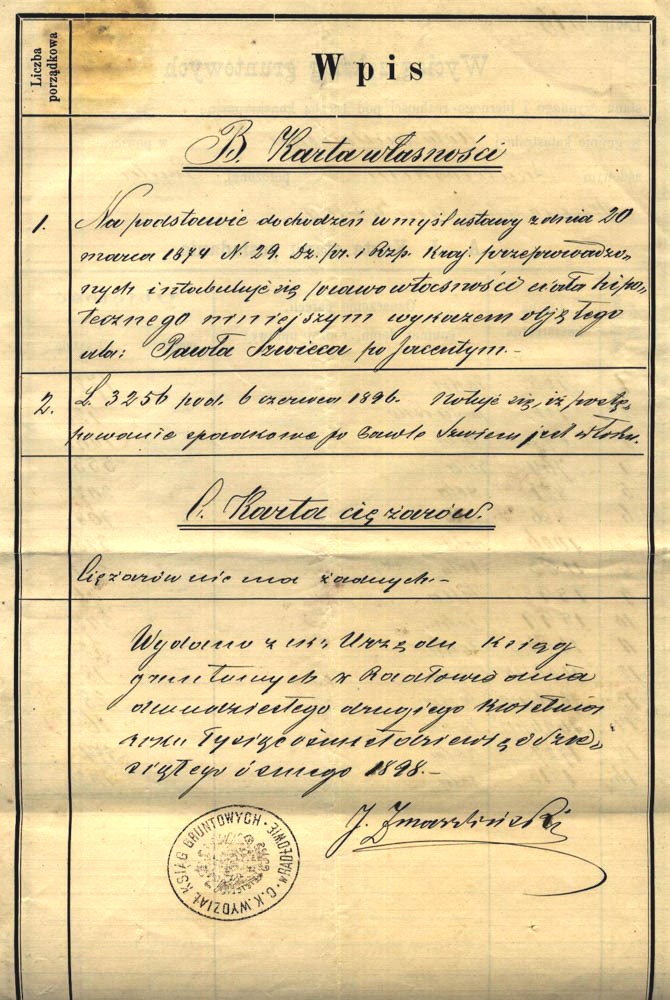 Liczba
porządkowa
Wpis
B. Karta własności
1. Na podstawie dochodzeń w myśl ustawy z dnia 20
marca 1874 N. 29. Dz. pr. i Rzp. Kraj. przeprowadzo-
nych intabuluje się prawo własności ciała hipo-
tecznego niniejszym wykazem objętego
dla: Pawła Szwieca po Jacentym.-
2. L. 3256 pod. 6 czerwca 1896. Notuje się, iż postę-
powanie spadkowe po Pawle Szwiecu jest w toku.
C. Karta ciężarów.
Ciężarów nie ma żadnych.-
Wydano z ck: Urzędu Ksiąg
gruntowych w Radłowie dnia
dwudziestego drugiego Kwietnia
roku Tysiąc ośmset dziewięćdzie-
siątego ósmego 1898.-
C. K. WYDZIAŁ KSIĄG GRUNTOWYCH · w RADŁOWIE ·